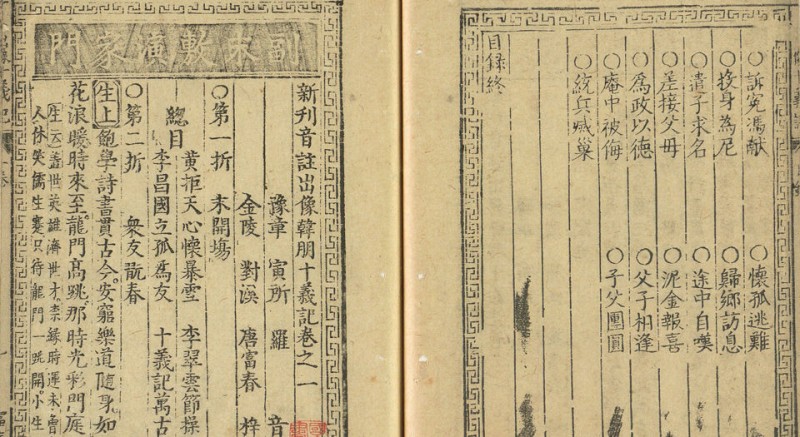 ○訴冤馮獻 ○懷孤逃難
○投身為尼 ○歸鄉訪息
○遣子求名 ○途中自嘆
○差接父母 ○泥金報喜
○爲政以德 ○父子相逢
○庵中被侮 ○子父團圓
○統兵滅巢
目録終
副末敷演家門
新刊音註出像韓朋十義記卷之一
豫章 寅所 羅 音
金陵 對溪 唐富春 梓
○第一折 末開塲
總目 黃拒天心懷暴雪 李翠雲節操
李昌國立孤爲友 十義記萬古
○第二折 衆友翫春
生上 飽學詩書貫古今。安窮樂道隨身。如
花浪暖時來至。龍門髙跳。那時光彩門庭
生云 盖世英雄濟世才。柰緣時運未
人休笑儒生蹇只待龍門一跳開小生